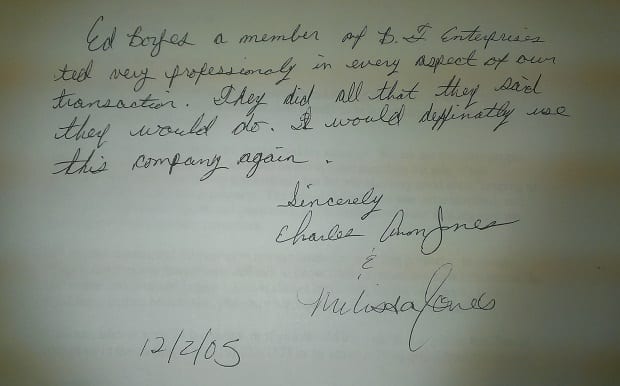 Ed Boyles a member of B. I Enterprises
ted very professionaly in every aspect of our
transaction. They did all that they said
they would do. I would deffinatly use
this company again.
Sincerely
Charles Jones
&
Melissa Jones
12/2/05